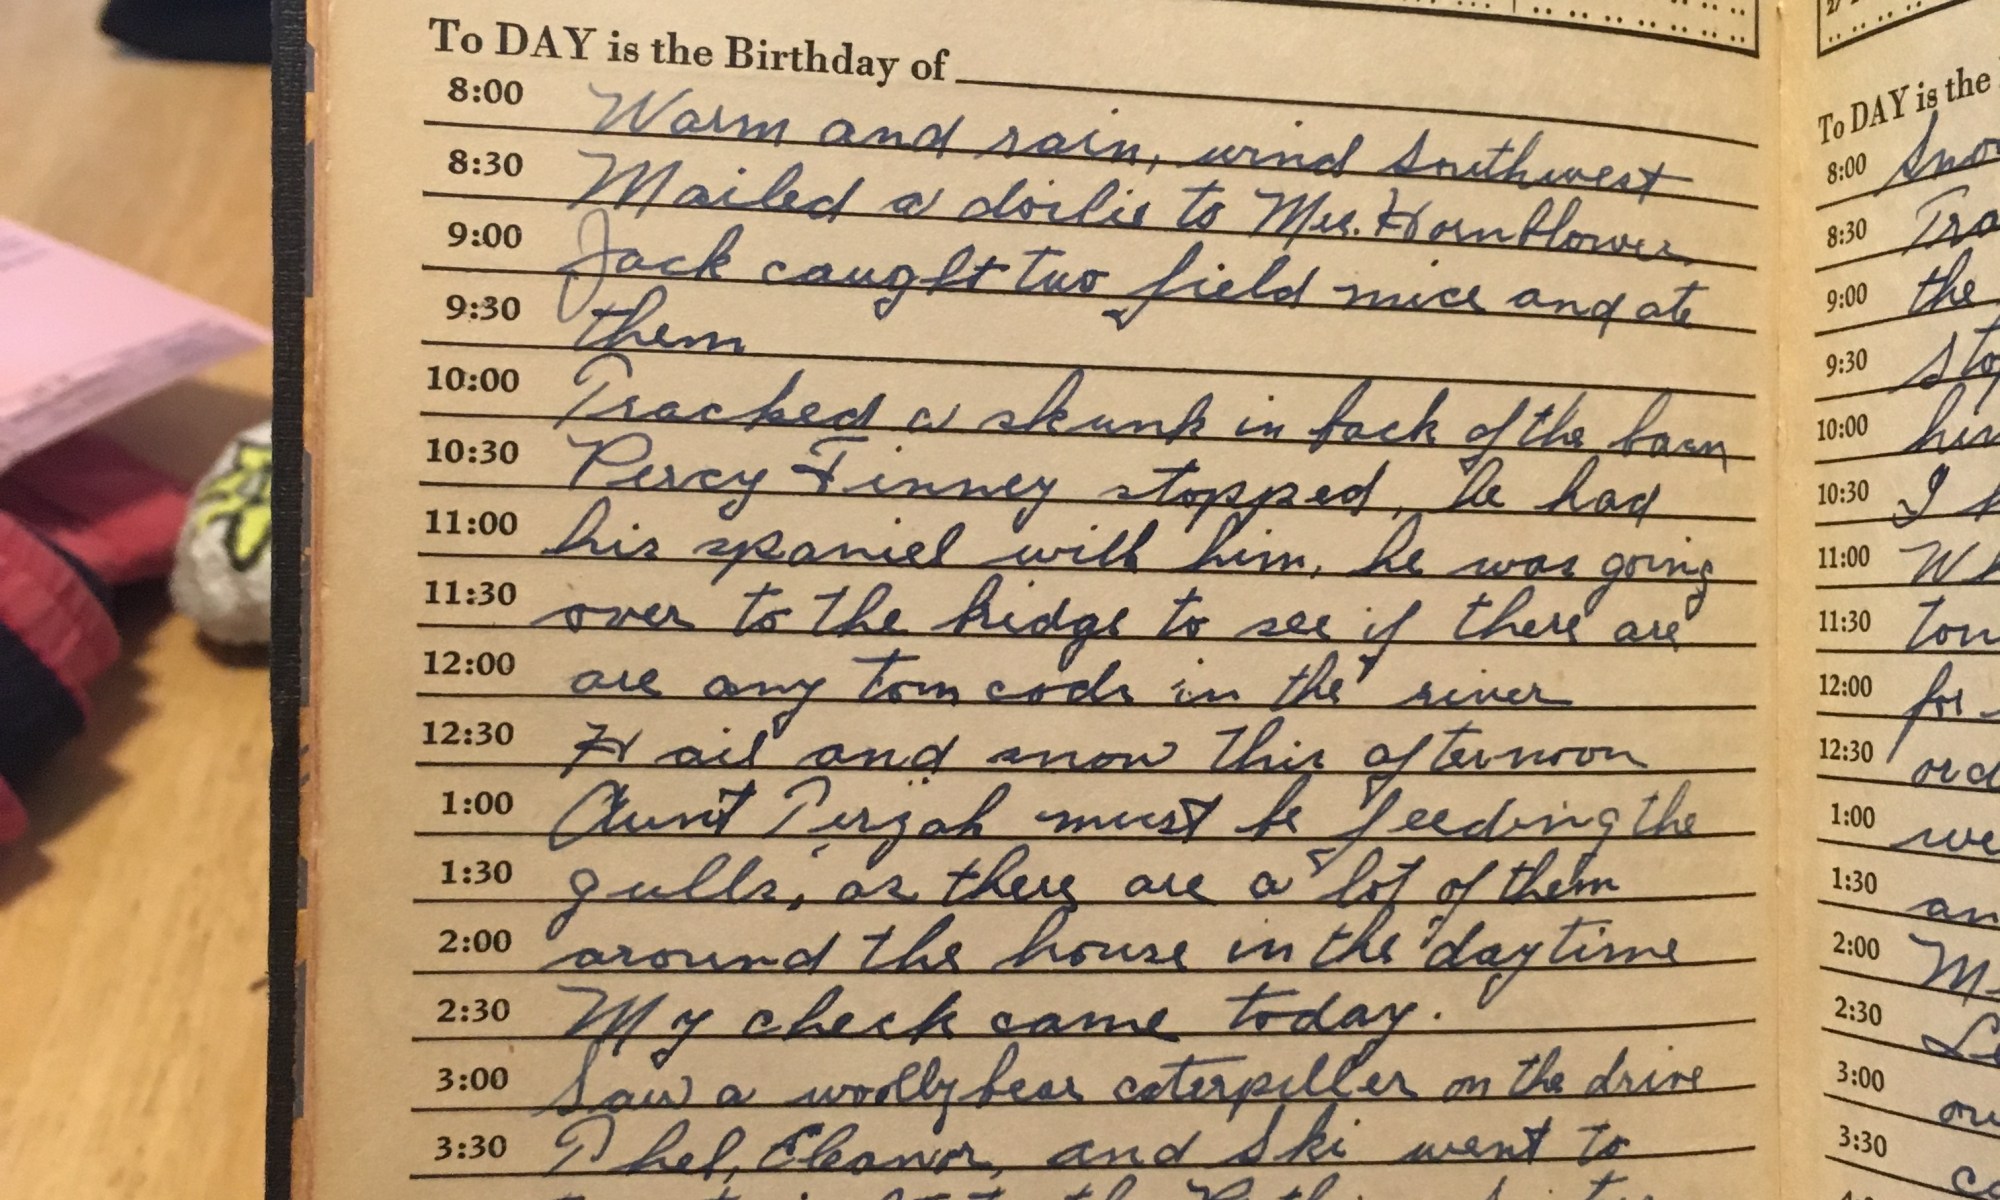 To DAY is the Birthday of
8:00 Warm and rain, wind Southwest
8:30 Mailed a doilie to Mrs. Hornblower.
9:00 Jack caught two field mice and ate
9:30 them
10:00 Tracked a skunk in back of the barn
10:30 Percy Finney stopped, he had
11:00 his spaniel with him, he was going
11:30 over to the bridge to see if there are
12:00 are any tom cods in the river
12:30 Hail and snow this afternoon
1:00 Aunt Tirzah must be feeding the
1:30 gulls, as there are a lot of them
2:00 around the house in the daytime
2:30 My check came today.
3:00 Saw a woolly bear caterpiller on the drive
3:30 Phel, Eleanor, and Ski went to
To DAY is the
8:00
8:30
9:00 the
9:30
10:00
10:30 I
11:00
11:30
12:00 for
12:30
1:00
1:30
2:00
2:30
3:00
3:30